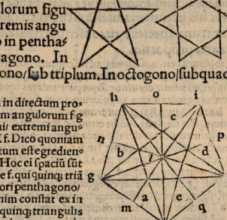 lorum figu
remis angu
o in pentha⸗
agono. In
ono/sub triplum. In octogono/subquad
in directum pro⸗
m angulorum f g
ui extremi angu⸗
f. Dico quoniam
tum est egredien⸗
Hoc ei spaciū sūt
e f. qui quinq; triā
ori penthagono/
nim constat ex is
quinq; triangulis
h o i
g c
n d
b l
g f p
a e
m c q